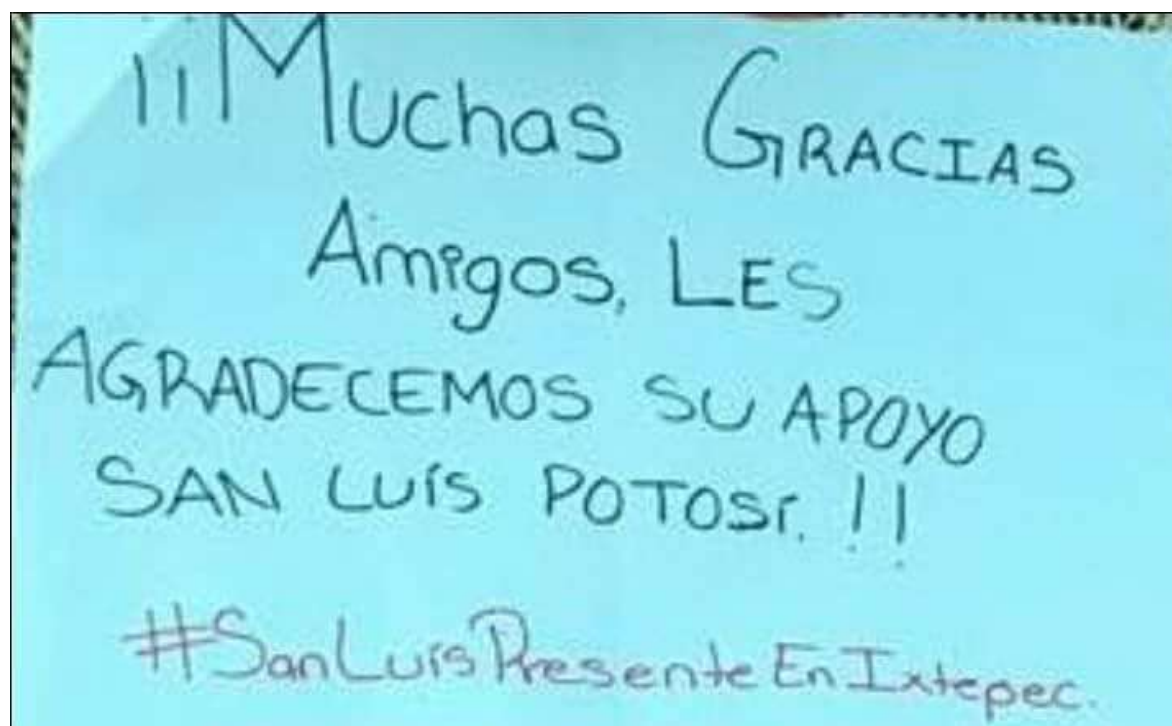 ¡¡Muchas GRACIAS
Amigos, LES
AGRADECEMOS SU APOYO
SAN LUíS POTOSí. !!
#SanLuísPresenteEnIxtepec.